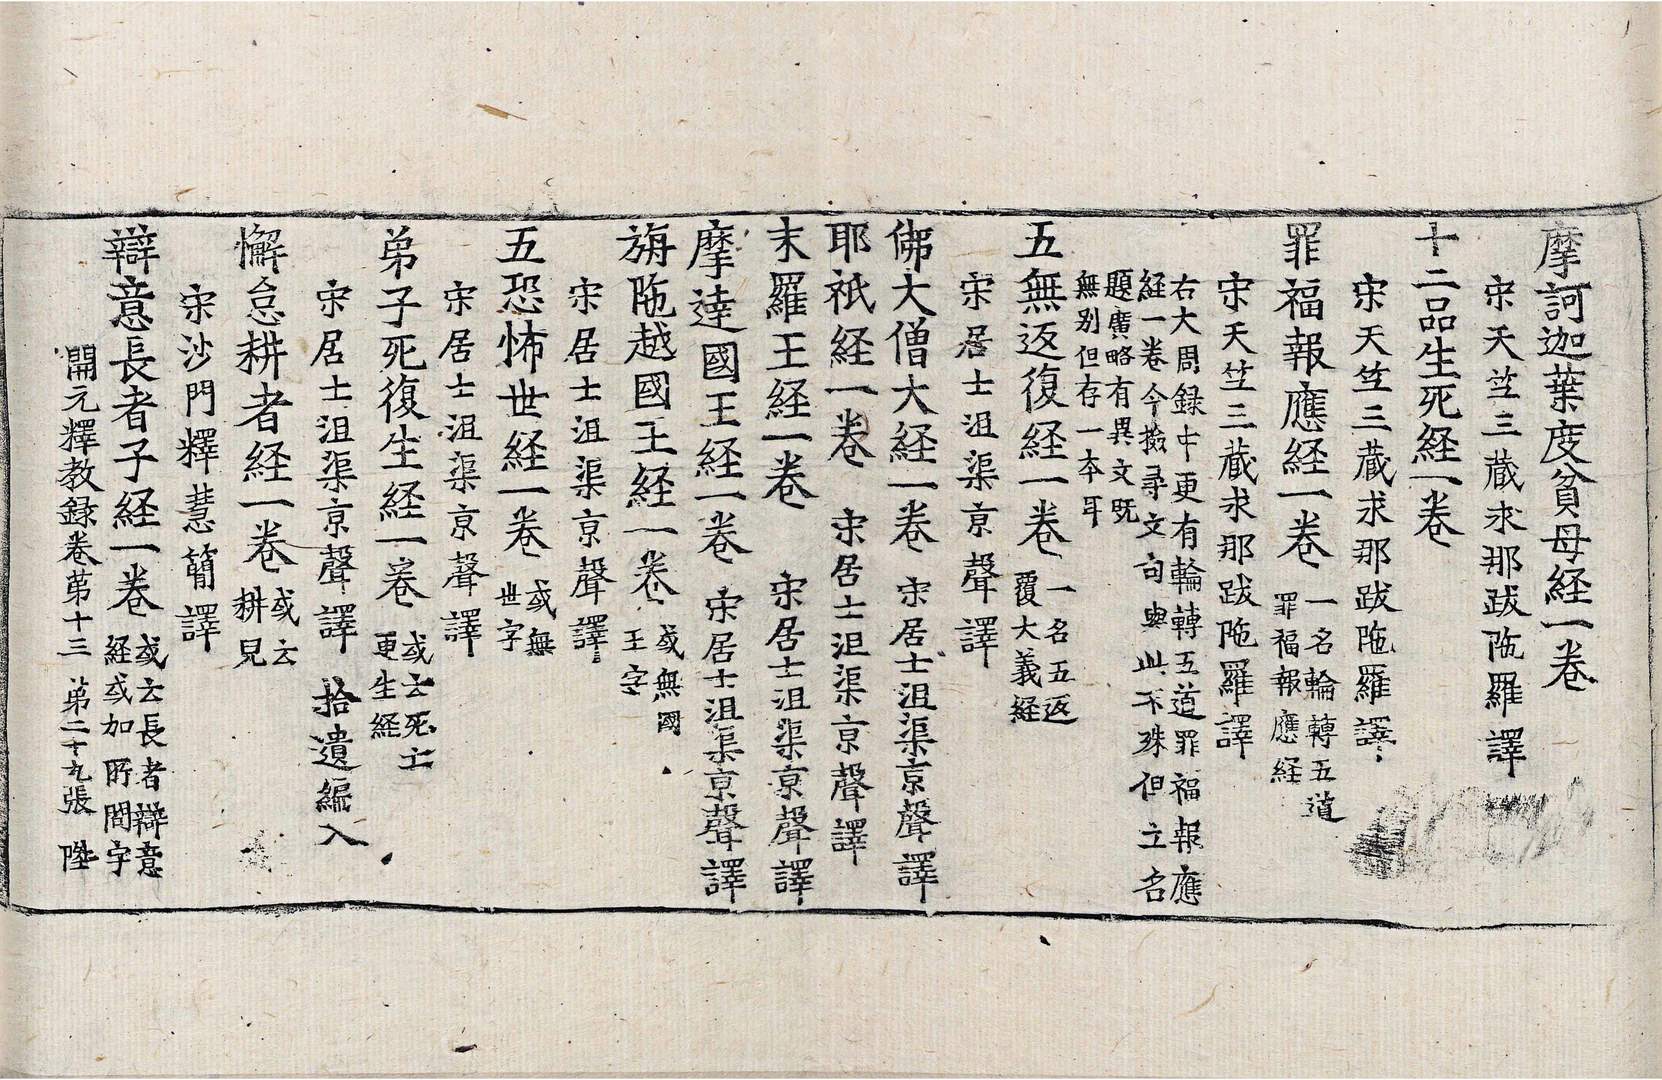 摩訶迦葉度貧母経一卷
宋天竺三藏求那跋陁羅譯
十二品生死経一卷
宋天竺三藏求那跋陁羅譯
罪福報應経一卷 一名輪轉五道
罪福報應経
宋天竺三藏求那跋陁羅譯
右大周録中更有輪轉五道罪福報應
経一卷今撿尋文句與此不殊但立名
題廣略有異文既
無別但存一本耳
五無返復経一卷 一名五返
覆大義経
宋居士沮渠京聲譯
佛大僧大経一卷 宋居士沮渠京聲譯
耶祇経一卷 宋居士沮渠京聲譯
末羅王経一卷 宋居士沮渠京聲譯
摩達國王経一卷 宋居士沮渠京聲譯
旃陁越國王経一卷 或無國
王字
宋居士沮渠京聲譯
五恐怖世経一卷 或無
世字
宋居士沮渠京聲譯
弟子死復生経一卷 或云死亡
更生経
宋居士沮渠京聲譯 拾遺編入
懈怠耕者経一卷 或云
耕兒
宋沙門釋慧簡譯
辯意長者子経一卷 或云長者辯意
経或加所問字
開元釋教録卷第十三 第二十九張 陞